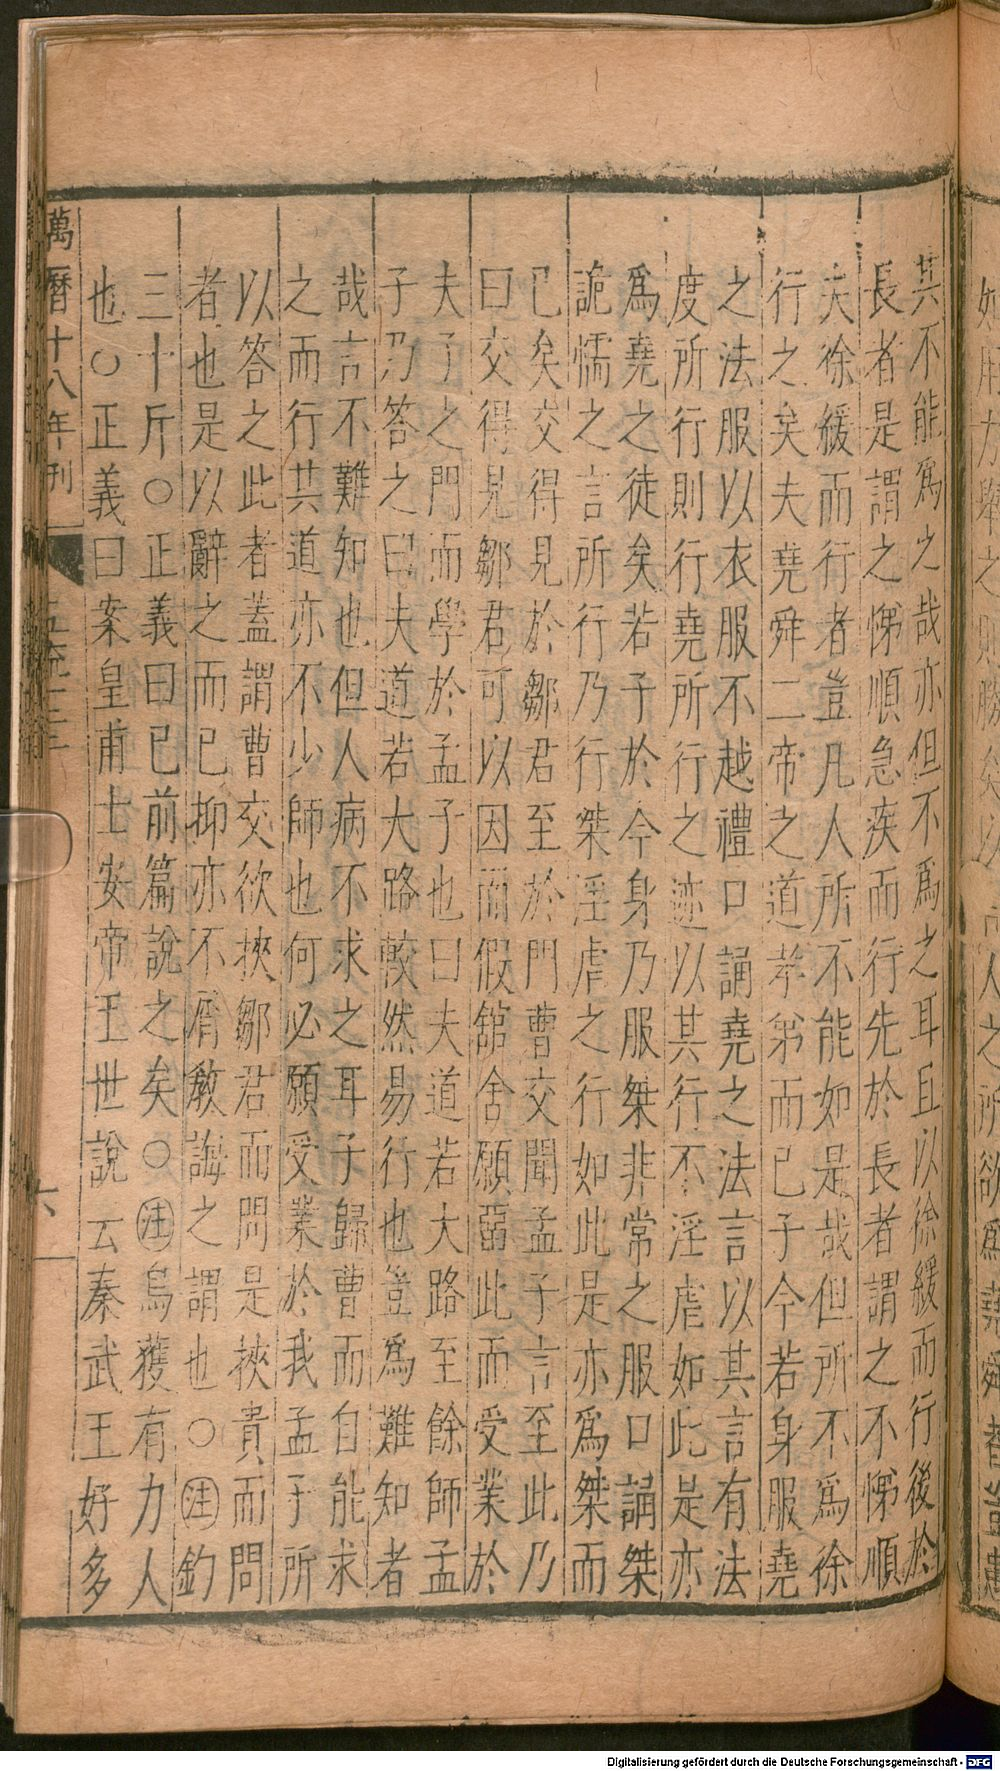 人之所欲爲堯舜者豈
其不能爲之哉亦但不爲之耳且以徐緩而行後於
長者是謂之悌順急疾而行先於長者謂之不悌順
夫徐緩而行者豈凡人所不能如是哉但所不爲徐
行之矣夫堯舜二帝之道孝弟而已子今若身服堯
之法服以衣服不越禮口誦堯之法言以其言有法
度所行則行堯所行之迹以其行不淫虐如此是亦
爲堯之徒矣若子於今身乃服桀非常之服口誦桀
詭懦之言所行乃行桀淫虐之行如此是亦爲桀而
已矣交得見於鄒君至於門曹交聞孟子言至此乃
曰交得見鄒君可以因而假館舍願畱此而受業於
夫子之門而學於孟子也曰夫道若大路至餘師孟
子乃答之曰夫道若大路較然易行也豈爲難知者
哉言不難知也但人病不求之耳子歸曹而自能求
之而行其道亦不少師也何必願受業於我孟子所
以答之此者蓋謂曹交欲挾鄒君而問是挾貴而問
者也是以辭之而已抑亦不屑敎誨之謂也○注釣
三十斤○正義曰已前篇說之矣○注烏獲有力人
也○正義曰案皇甫士安帝王世說云秦武王好多
萬曆十八年刊
六
Digitalisierung gefördert durch die Deutsche Forschungsgemeinschaft - DFG